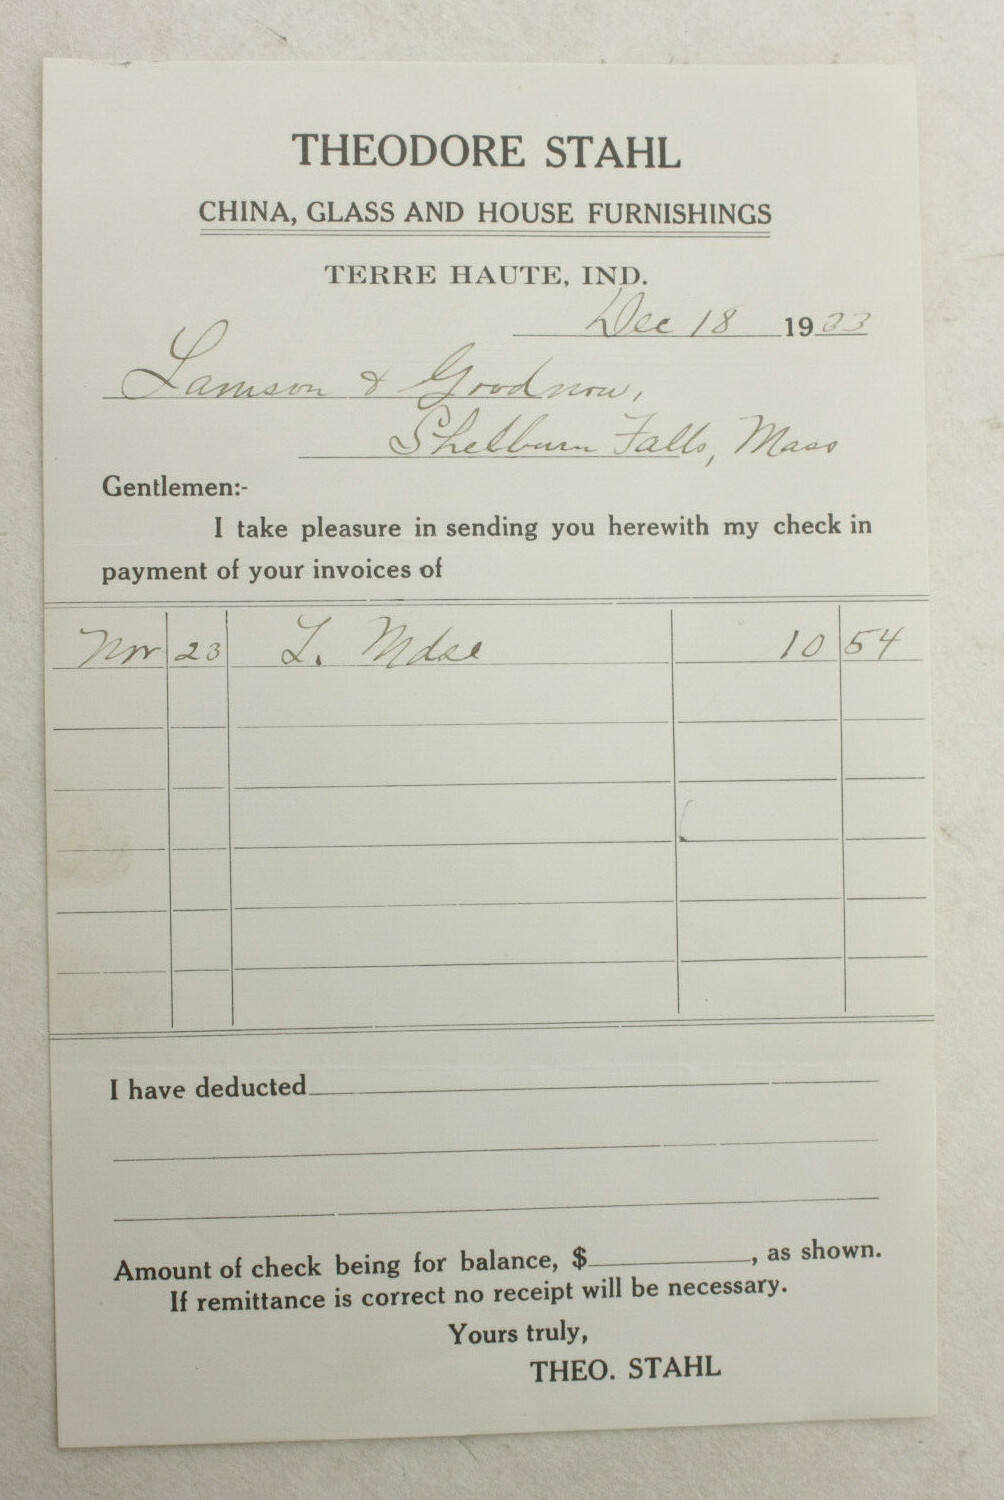 THEODORE STAHL
CHINA, GLASS AND HOUSE FURNISHINGS
TERRE HAUTE, IND.
Dec 18 19
Lamson & Goodnow,
Shelburn Falls, Mass
Gentlemen:-
I take pleasure in sending you herewith my check in
payment of your invoices of
Nov 23 L. Mdse 10 54
I have deducted
Amount of check being for balance, $ , as shown.
If remittance is correct no receipt will be necessary.
Yours truly,
THEO. STAHL